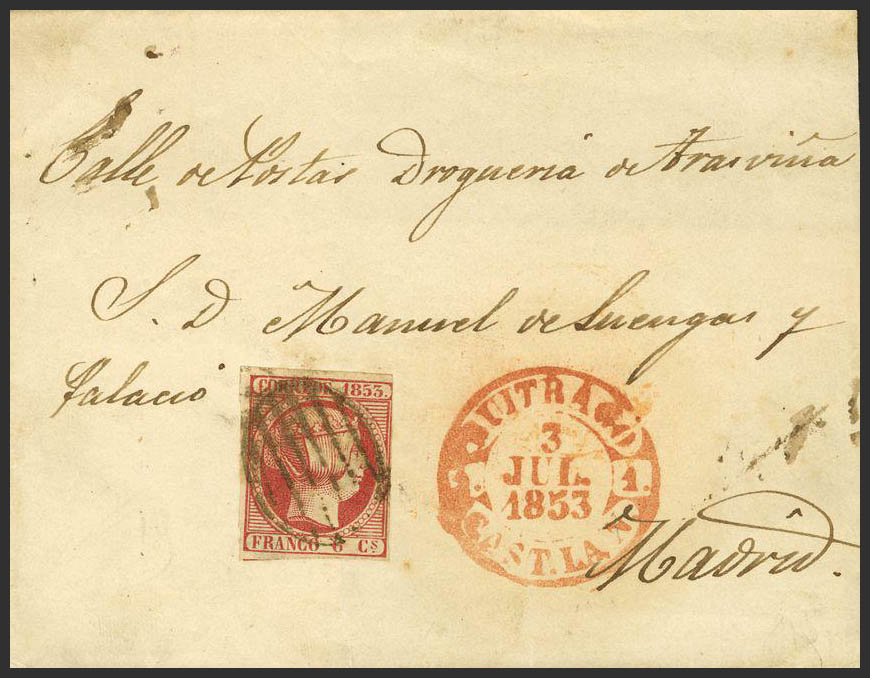 Calle de Postas Droguería de Trasviña
S. D Manuel de Luengas y
Palacio
CORREOS 1853.
FRANCO 6 Cs
BUITRAGO
3
JUL.
1853
1.
CAST. LA N.
Madrid.